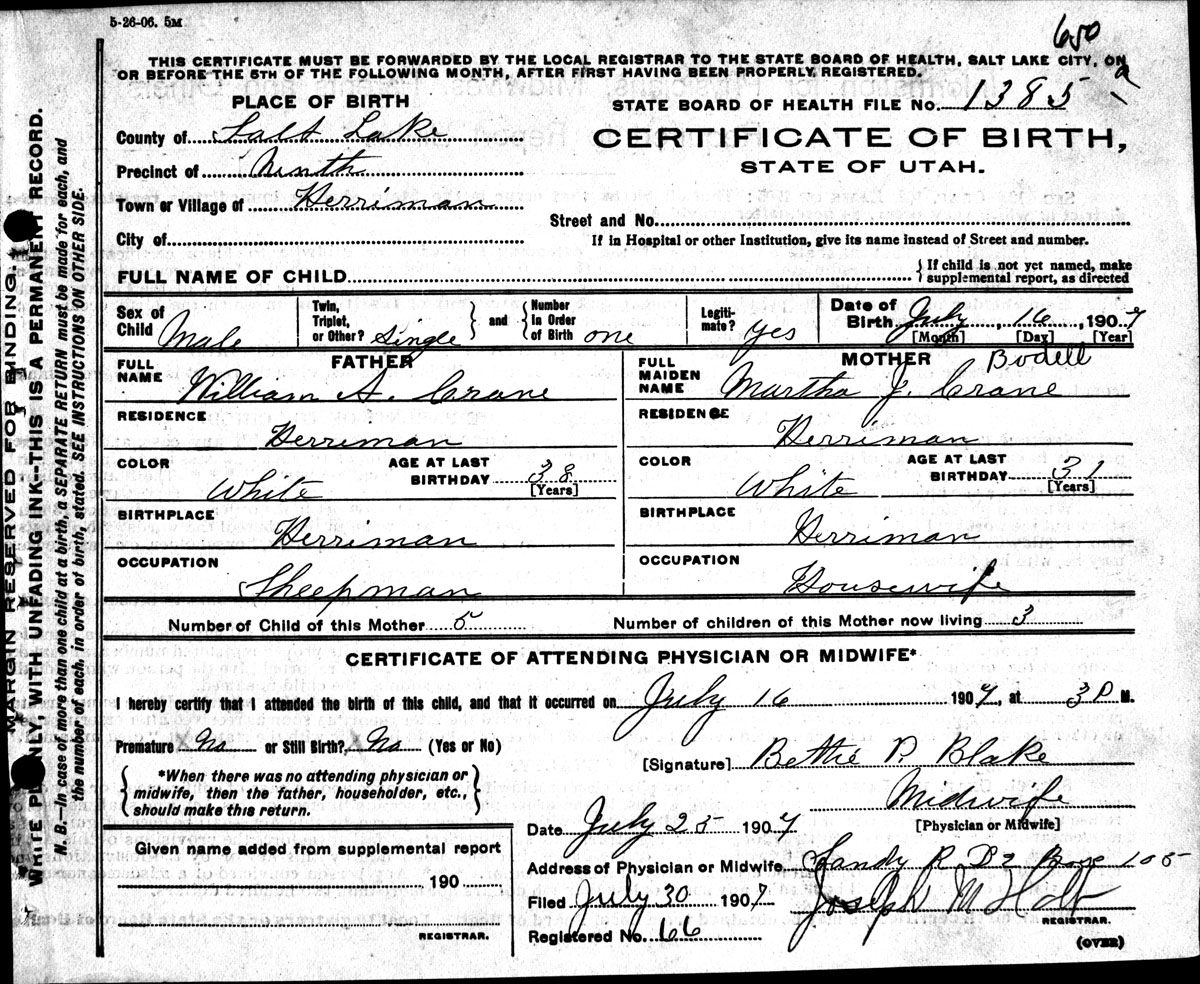 5-26-06. 5M
650
THIS CERTIFICATE MUST BE FORWARDED BY THE LOCAL REGISTRAR TO THE STATE BOARD OF HEALTH, SALT LAKE CITY, ON
OR BEFORE THE 5TH OF THE FOLLOWING MONTH, AFTER FIRST HAVING BEEN PROPERLY REGISTERED.
PLACE OF BIRTH
STATE BOARD OF HEALTH FILE No. 1385
County of Salt Lake
CERTIFICATE OF BIRTH,
STATE OF UTAH.
Precinct of Ninth
Town or Village of Herriman
Street and No.
City of
If in Hospital or other Institution, give its name instead of Street and number.
FULL NAME OF CHILD
{ If child is not yet named, make
supplemental report, as directed
Sex of Child Male
Twin, Triplet, or Other? Single } and { Number in Order of Birth one
Legitimate? yes
Date of Birth July, 16, 1907
[Month] [Day] [Year]
FATHER
FULL NAME William A. Crane
MOTHER Bodell
FULL MAIDEN NAME Martha J. Crane
RESIDENCE Herriman
RESIDENCE Herriman
COLOR White
AGE AT LAST BIRTHDAY 38 [Years]
COLOR White
AGE AT LAST BIRTHDAY 31 [Years]
BIRTHPLACE Herriman
BIRTHPLACE Herriman
OCCUPATION Sheepman
OCCUPATION Housewife
Number of Child of this Mother 5
Number of children of this Mother now living 3
CERTIFICATE OF ATTENDING PHYSICIAN OR MIDWIFE*
I hereby certify that I attended the birth of this child, and that it occurred on July 16 1907, at 3 P M.
Premature X No or Still Birth? X No (Yes or No)
[Signature] Bettie P. Blake
{ *When there was no attending physician or
midwife, then the father, householder, etc.,
should make this return. }
Midwife
[Physician or Midwife]
Date July 25 1907.
Given name added from supplemental report
190
REGISTRAR.
Address of Physician or Midwife Sandy R D 2 Box 105
Filed July 30 1907 Joseph M Holt
REGISTRAR.
Registered No. 66
(OVER)
MARGIN RESERVED FOR BINDING.
WRITE PLAINLY, WITH UNFADING INK--THIS IS A PERMANENT RECORD.
N. B.—In case of more than one child at a birth, a SEPARATE RETURN must be made for each, and
the number of each, in order of birth, stated. SEE INSTRUCTIONS ON OTHER SIDE.